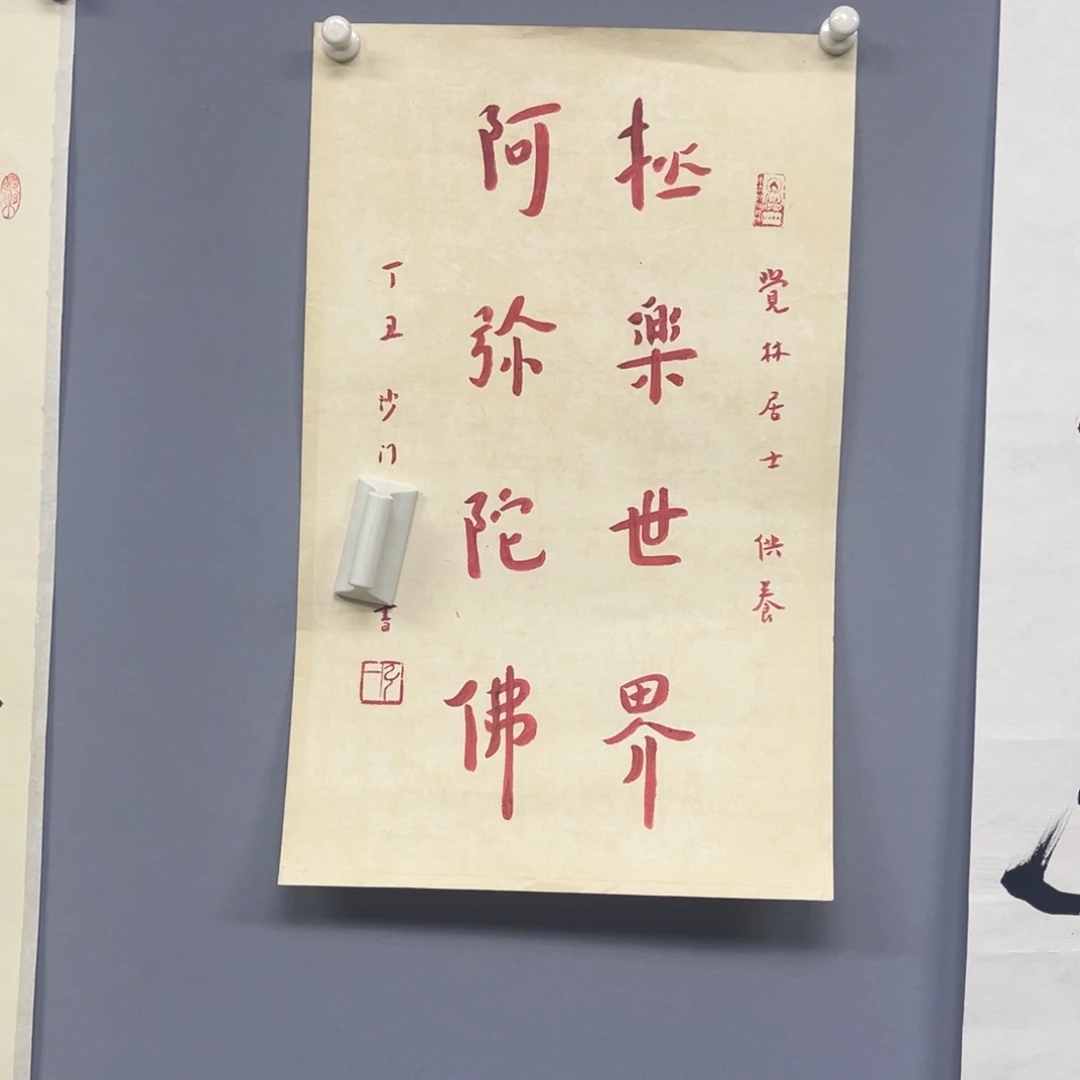 覺林居士 供養
极樂世界
阿弥陀佛
丁丑 沙门
書